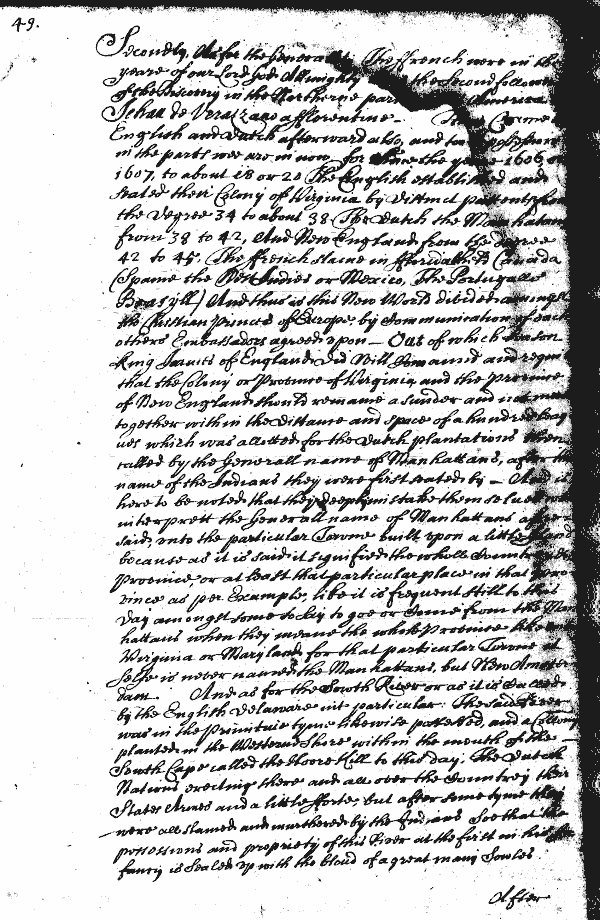 49.
Secondly, As for the Generall The ffrench were in the
yeare of our Lord God Allmighty the second followers
of the Discovery in the Northerne part America
Jehan de Verazzano a fflorentine — Came
English and Dutch afterward also, and took possession
in the parts wee are in now for since the yeare 1606 or
1607, to about 18 or 20 The English established and
seated their Colony of Virginia by distinct pattents from
the degree 34 to about 38 The Dutch the Manhatans
from 38 to 42, And New England from the degree
42 to 45. The ffrench Canada
(Spaine the West Indies or Mexico, The Portugalls
Brasyll) And thus is this New World divided amongst
the Christian Princes of Europe by Communication of each
others Embassadors agreed upon — Out of which reason
King James of England did Will and require
that the Colony or Province of Virginia and the Province
of New England should remaine asunder and not meet
together within the distance and space of a hundred leag
ues which was allotted for the Dutch plantations then
called by the Generall name of Manhattans, after the
name of the Indians they were first seated by — And is
here to be noted that they deeply mistake themselves who
interprett the Generall name of Manhattans
said, unto the particular Towne built upon a little Island
because as it is said it signified the whole Countrey and
Province, or at least that particular place in that Pro
vince as per Example, like it is frequent still to this
day amongst some to say to goe or Come from the Man
hattans when they meane the whole Province like
Virginia or Maryland, for that particular Towne it
selfe is never named the Manhattans, but New Amster
dam. And as for the South River or as it is Called
by the English Delaware in particular. The said River
was in the Primitive tyme likewise possessed, and a Collony
planted in the Westerne Shore within the mouth of the
South Cape called the Hoore Kill to this day. The Dutch
Nations erecting there and all over the Countrey their
States Armes and a little fforte, but after some tyme they
were all slained and murthered by the Indians Soe that the
possessions and propriety of this River at the first in his In
fancy is Sealed up with the bloud of a great many Sowles
After